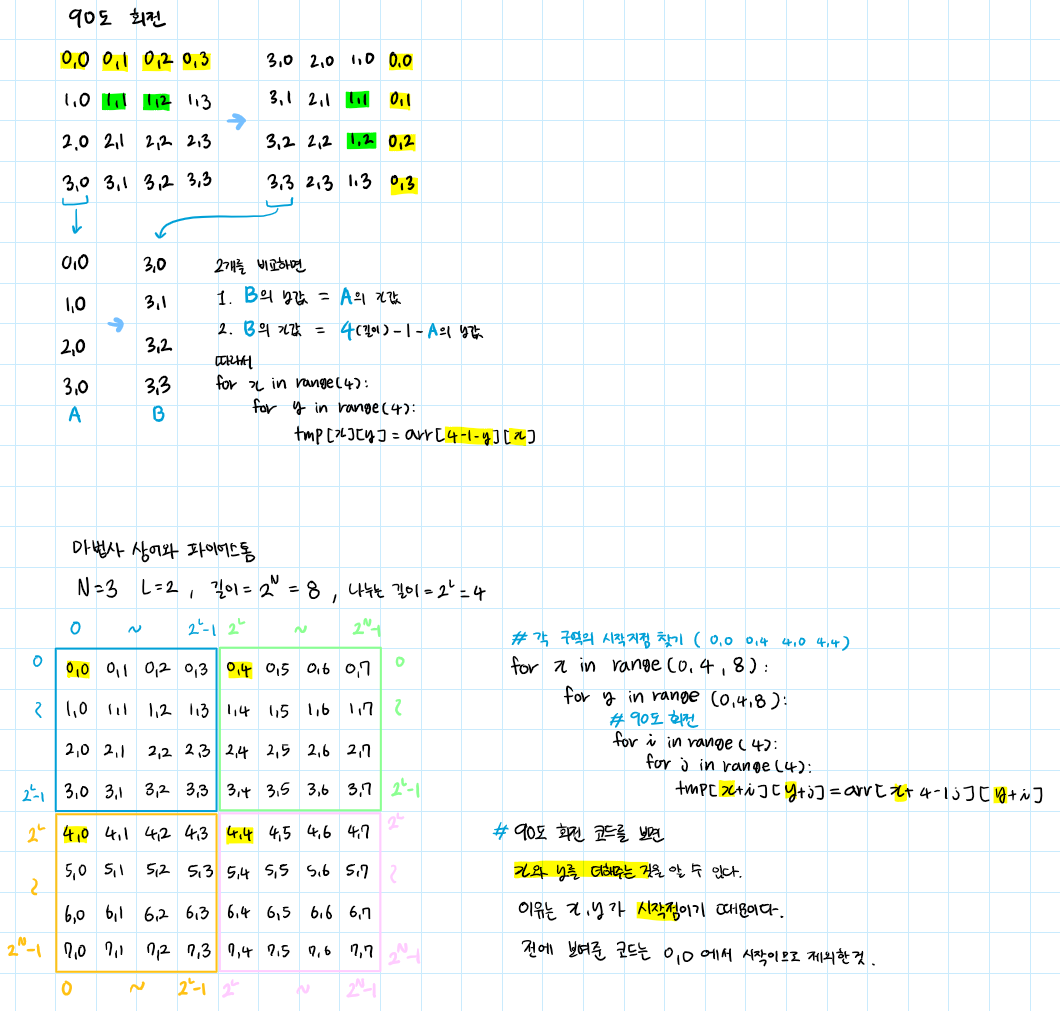 90도 회전
0,0 0,1 0,2 0,3 3,0 2,0 1,0 0,0
1,0 1,1 1,2 1,3 → 3,1 2,1 1,1 0,1
2,0 2,1 2,2 2,3 3,2 2,2 1,2 0,2
3,0 3,1 3,2 3,3 3,3 2,3 1,3 0,3
0,0 3,0
1,0 → 3,1
2,0 3,2
3,0 3,3
A B
2개를 비교하면
1. B의 y값 = A의 x값
2. B의 x값 = 4(길이)-1-A의 y값
따라서
for x in range(4):
for y in range(4):
tmp[x][y] = arr[4-1-y][x]
마법사 상어와 파이어스톰
N=3 L=2, 길이=2^N = 8, 나누는 길이=2^L=4
0 ~ 2^L-1 2^L ~ 2^N-1
0 0,0 0,1 0,2 0,3 0,4 0,5 0,6 0,7 0
~ 1,0 1,1 1,2 1,3 1,4 1,5 1,6 1,7 ~
2,0 2,1 2,2 2,3 2,4 2,5 2,6 2,7
2^L-1 3,0 3,1 3,2 3,3 3,4 3,5 3,6 3,7 2^L-1
2^L 4,0 4,1 4,2 4,3 4,4 4,5 4,6 4,7 2^L
~ 5,0 5,1 5,2 5,3 5,4 5,5 5,6 5,7 ~
6,0 6,1 6,2 6,3 6,4 6,5 6,6 6,7
2^N-1 7,0 7,1 7,2 7,3 7,4 7,5 7,6 7,7 2^N-1
0 ~ 2^L-1 2^L ~ 2^N-1
# 각 구역의 시작지점 찾기 ( 0,0 0,4 4,0 4,4)
for x in range(0,4,8):
for y in range (0,4,8):
# 90도 회전
for i in range(4):
for j in range(4):
tmp[x+i][y+j]=arr[x+4-1j][y+i]
# 90도 회전 코드를 보면
x와 y를 더해주는 것을 알 수 있다.
이유는 x,y가 시작점이기 때문이다.
전에 보여준 코드는 0,0 에서 시작이므로 제외한것.